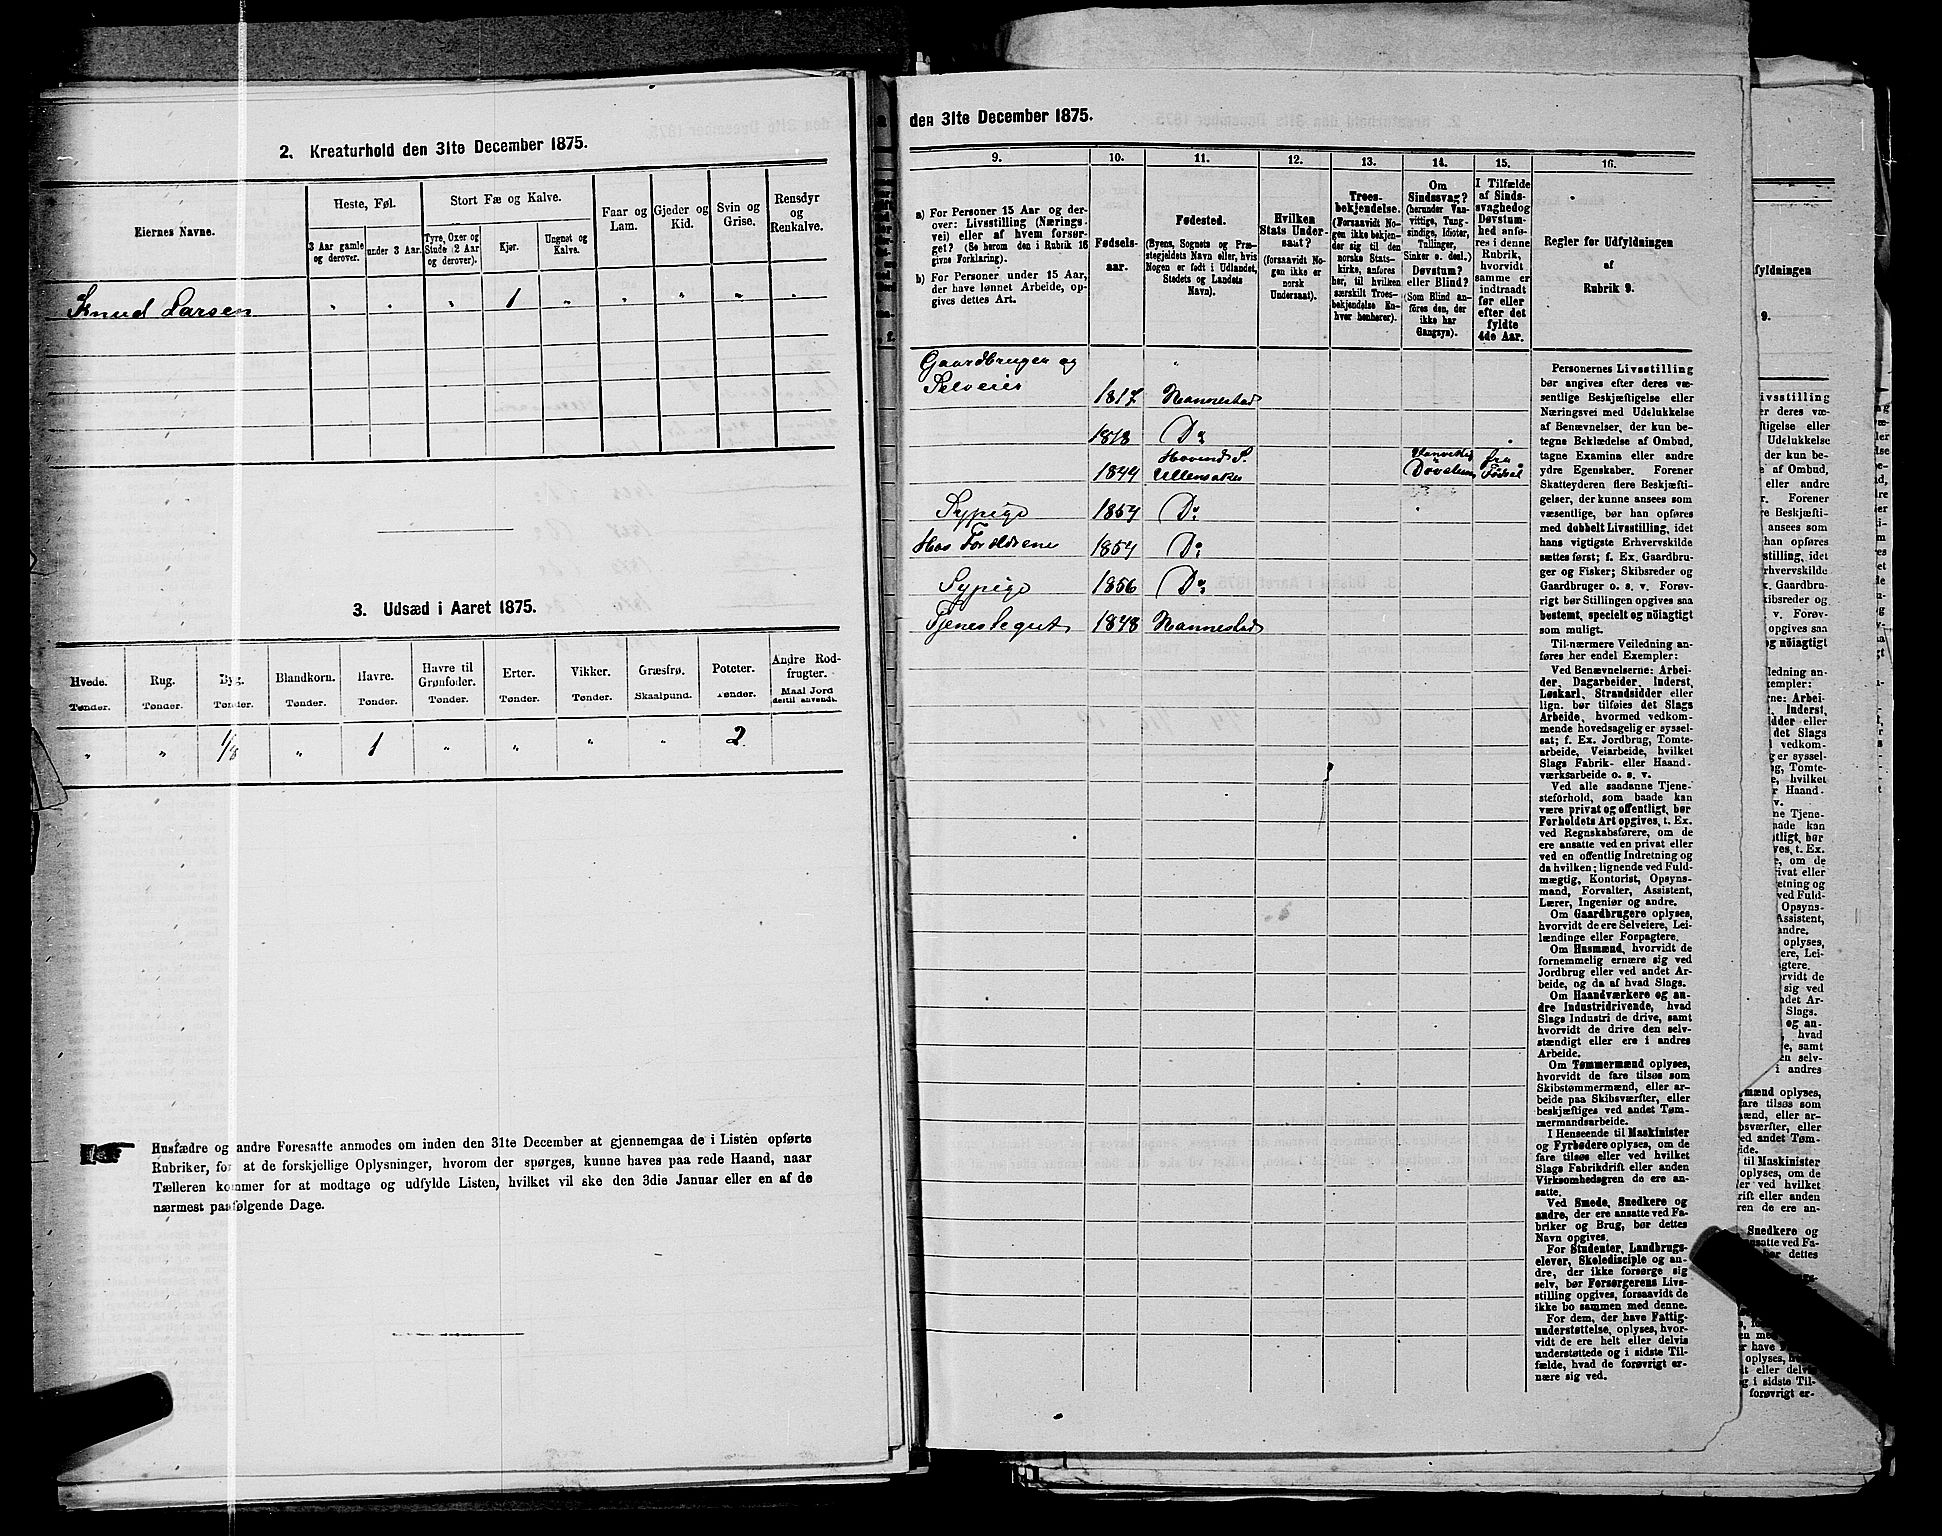 2. Kreaturhold den 31te December 1875.
Eiernes Navne.
Heste, Føl.
3 Aar gamle
og derover.
under 3 Aar.
Stort Fæ og Kalve.
Tyre, Oxer og
Stude (2 Aar
og derover).
Kjør.
Ungnøt og
Kalve.
Faar og
Lam.
Gjeder og
Kid.
Svin og
Grise.
Rensdyr
og
Renkalve.
Knud Larsen " " " 1 " " " " "
3. Udsæd i Aaret 1875.
Hvede.
Tønder.
Rug.
Tønder.
Byg.
Tønder.
Blandkorn.
Tønder.
Havre.
Tønder.
Havre til
Grønfoder.
Tønder.
Erter.
Tønder.
Vikker.
Tønder.
Græsfrø.
Skaalpund.
Poteter.
Tønder.
Andre Rod-
frugter.
Maal Jord
dertil anvendt.
" " 1/8 " 1 " " " " 2
Husfædre og andre Foresatte anmodes om inden den 31te December at gjennemgaa de i Listen opførte
Rubriker, for at de forskjellige Oplysninger, hvorom der spørges, kunne haves paa rede Haand, naar
Tælleren kommer for at modtage og udfylde Listen, hvilket vil ske den 3die Januar eller en af de
nærmest paafølgende Dage.
den 31te December 1875.
9.
a) For Personer 15 Aar og der-
over: Livsstilling (Nærings-
vei) eller af hvem forsør-
get? (Se herom den i Rubrik 16
givne Forklaring).
b) For Personer under 15 Aar,
der have lønnet Arbeide, op-
gives dettes Art.
10.
Fødsels-
aar.
11.
Fødested.
(Byens, Sognets og Præ-
stegjeldets Navn eller, hvis
Nogen er født i Udlandet,
Stedets og Landets
Navn).
12.
Hvilken
Stats Under-
saat?
(forsaavidt No-
gen ikke er
norsk
Undersaat).
13.
Troes-
bekjendelse.
(Forsaavidt No-
gen ikke bekjen-
der sig til den
norske Stats-
kirke, anføres
her, til hvilken
særskilt Troes-
bekjendelse En-
hver henhører).
14.
Om
Sindssvag?
(herunder Van-
vittige, Tung-
sindige, Idioter,
Tullinger,
Sinker o. desl.)
Døvstum?
eller Blind?
(Som Blind an-
føres den, der
ikke har
Gangsyn).
15.
I Tilfælde
af Sinds-
svaghed og
Døvstum-
hed anfø-
res i denne
Rubrik,
hvorvidt
samme er
indtraadt
før eller
efter det
fyldte
4de Aar.
16.
Regler for Udfyldningen
af
Rubrik 9.
Gaardbruger og
Selveier 1817 Nannestad
1818 Do
Hovind S.
1844 Ullensaker Døvstum fra Fødsel
Sypige 1854 Do
Hos Forældrene 1854 Do
Sypige 1856 Do
Tjenestegut 1848 Nannestad
Personernes Livsstilling
bør angives efter deres væ-
sentlige Beskjæftigelse eller
Næringsvei med Udelukkelse
af Benævnelser, der kun be-
tegne Beklædelse af Ombud,
tagne Examina eller andre
ydre Egenskaber. Forener
Skatteyderen flere Beskjæfti-
gelser, der kunne ansees som
væsentlige, bør han opføres
med dobbelt Livsstilling, idet
hans vigtigste Erhvervskilde
sættes først; f. Ex. Gaardbru-
ger og Fisker; Skibsreder og
Gaardbruger o. s. v. Forøv-
rigt bør Stillingen opgives saa
bestemt, specielt og nøiagtigt
som muligt.
Til nærmere Veiledning an-
føres her endel Exempler:
Ved Benævnelserne: Arbei-
der, Dagarbeider, Inderst,
Løskarl, Strandsidder eller
lign. bør tilføies det Slags
Arbeide, hvormed vedkom-
mende hovedsagelig er syssel-
sat; f. Ex. Jordbrug, Tomte-
arbeide, Veiarbeide, hvilket
Slags Fabrik- eller Haand-
værksarbeide o. s. v.
Ved alle saadanne Tjene-
steforhold, som baade kan
være privat og offentligt, bør
Forholdets Art opgives, t. Ex.
ved Regnskabsførere, om de
ere ansatte ved en privat eller
ved en offentlig Indretning og
da hvilken; lignende ved Fuld-
mægtig, Kontorist, Opsyns-
mand, Forvalter, Assistent,
Lærer, Ingeniør og andre.
Om Gaardbrugere oplyses,
hvorvidt de ere Selveiere, Lei-
lændinge eller Forpagtere.
Om Husmænd, hvorvidt de
fornemmelig ernære sig ved
Jordbrug eller ved andet Ar-
beide, og da af hvad Slags.
Om Haandværkere og an-
dre Industridrivende, hvad
Slags Industri de drive, samt
hvorvidt de drive den selv-
stændigt eller ere i andres
Arbeide.
Om Tømmermænd oplyses,
hvorvidt de fare tilsøs som
Skibstømmermænd, eller ar-
beide paa Skibsværfter, eller
beskjæftiges ved andet Tøm-
mermandsarbeide.
I Henseende til Maskinister
og Fyrbødere oplyses, om de
fare tilsøs eller ved hvilket
Slags Fabrikdrift eller anden
Virksomhedsgren de ere an-
satte.
Ved Smede, Snedkere og
andre, der ere ansatte ved Fa-
briker og Brug, bør dettes
Navn opgives.
For Studenter, Landbrugs-
elever, Skoledisciple og an-
dre, der ikke forsørge sig
selv, bør Forsørgerens Livs-
stilling opgives, forsaavidt de
ikke bo sammen med denne.
For dem, der have Fattig-
understøttelse, oplyses, hvor-
vidt de ere helt eller delvis
understøttede og i sidste Til-
fælde, hvad de forøvrigt er-
nære sig ved.